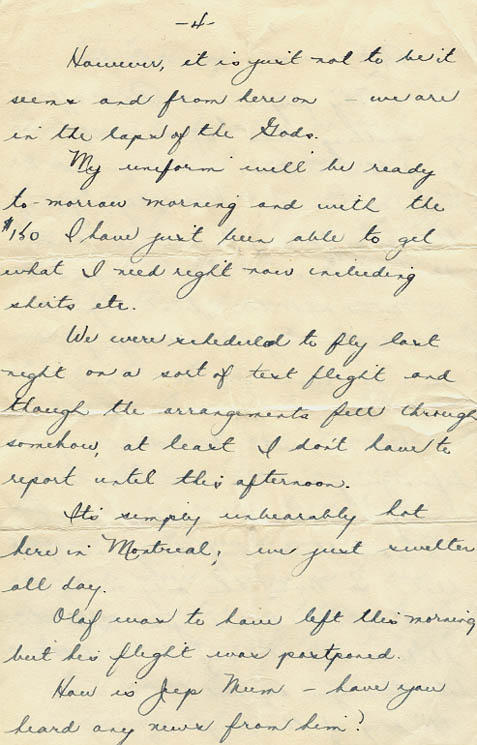 -4-
However, it is just not to be it
seems and from here on - we are
in the laps of the Gods.
My uniform will be ready
to-morrow morning and with the
$150 I have just been able to get
what I need right now including
shirts etc.
We were scheduled to fly last
night on a sort of test flight and
though the arrangements fell through
somehow, at least I don't have to
report until this afternoon.
Its simply unbearably hot
here in Montreal; we just swelter
all day.
Olaf was to have left this morning
but his flight was postponed.
How is Jeep Mum - have you
heard any news from him?